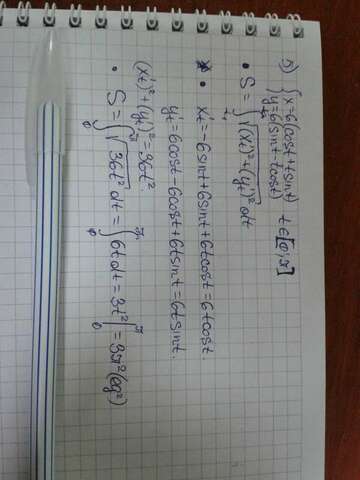 5) {x=6(cost+tsint)
{y=6(sint-tcost) t∈[0;π]
• S = ∫ √((x't)²+(y't)²) dt
• x't=-6sint+6sint+6tcost=6tcost.
y't=6cost-6cost+6tsint=6tsint.
(x't)²+(y't)²=36t².
• S = ∫₀^π √36t² dt = ∫₀^π 6tdt = 3t² |₀^π = 3π² (ед²)